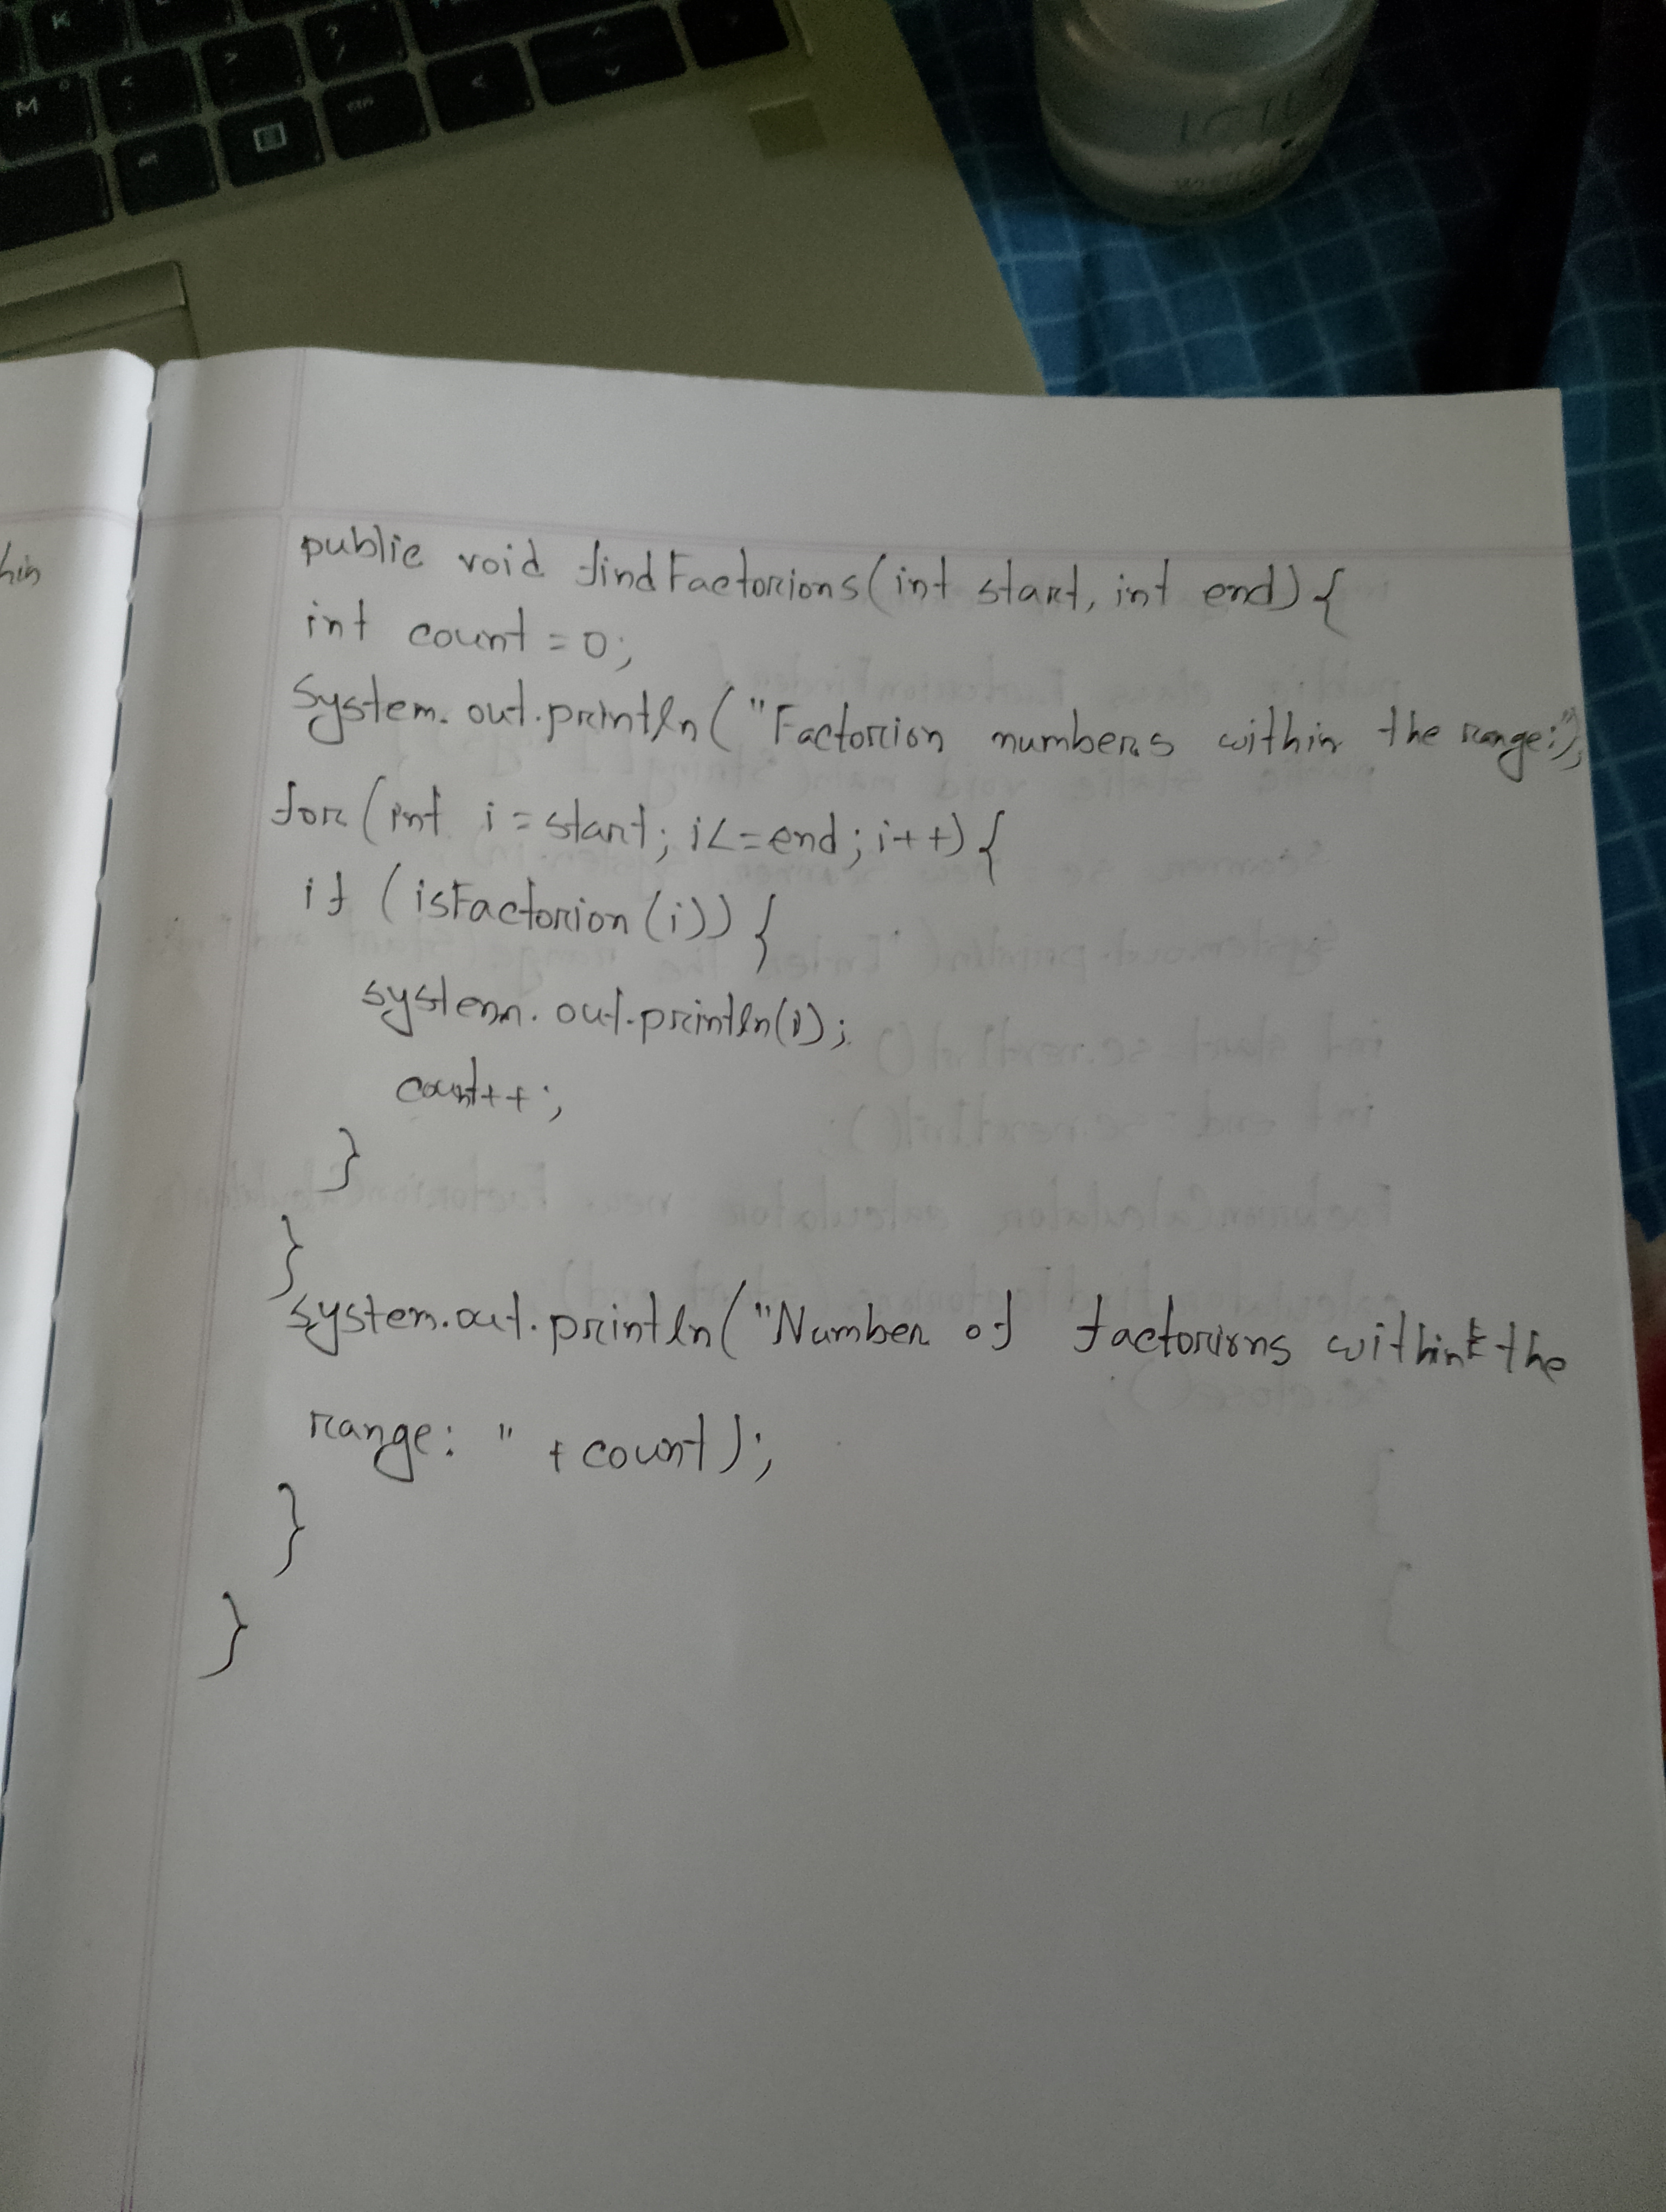 public void findFactorions(int start, int end){
int count = 0;
System.out.println("Factorion numbers within the range:");
for(int i = start; i<=end; i++){
if (isFactorion(i)) {
system.out.println(i);
count++;
}
}
system.out.println("Number of factorions within the
range: " + count);
}
}